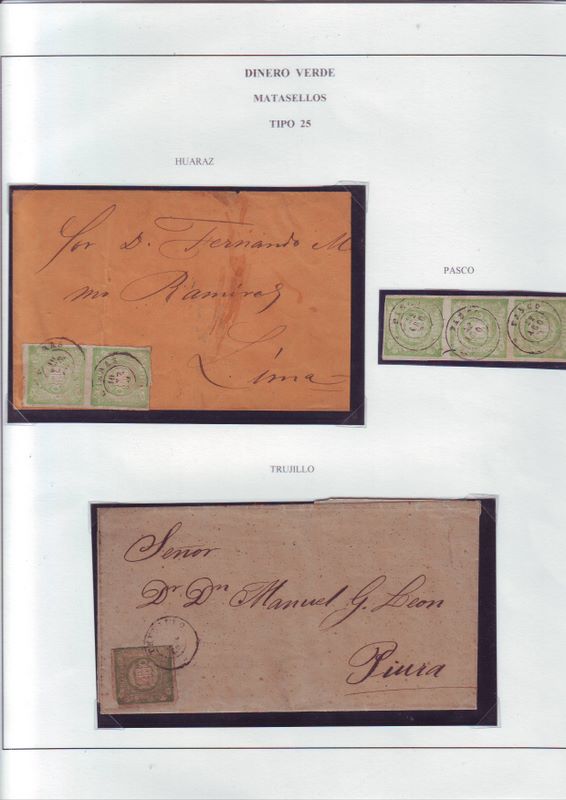 DINERO VERDE
MATASELLOS
TIPO 25
HUARAZ
Por D. Fernando M
mo Ramirez
Lima
PASCO
PASCO
TRUJILLO
Señor
Dr Dn Manuel G. Leon
Piura
TRUJILLO